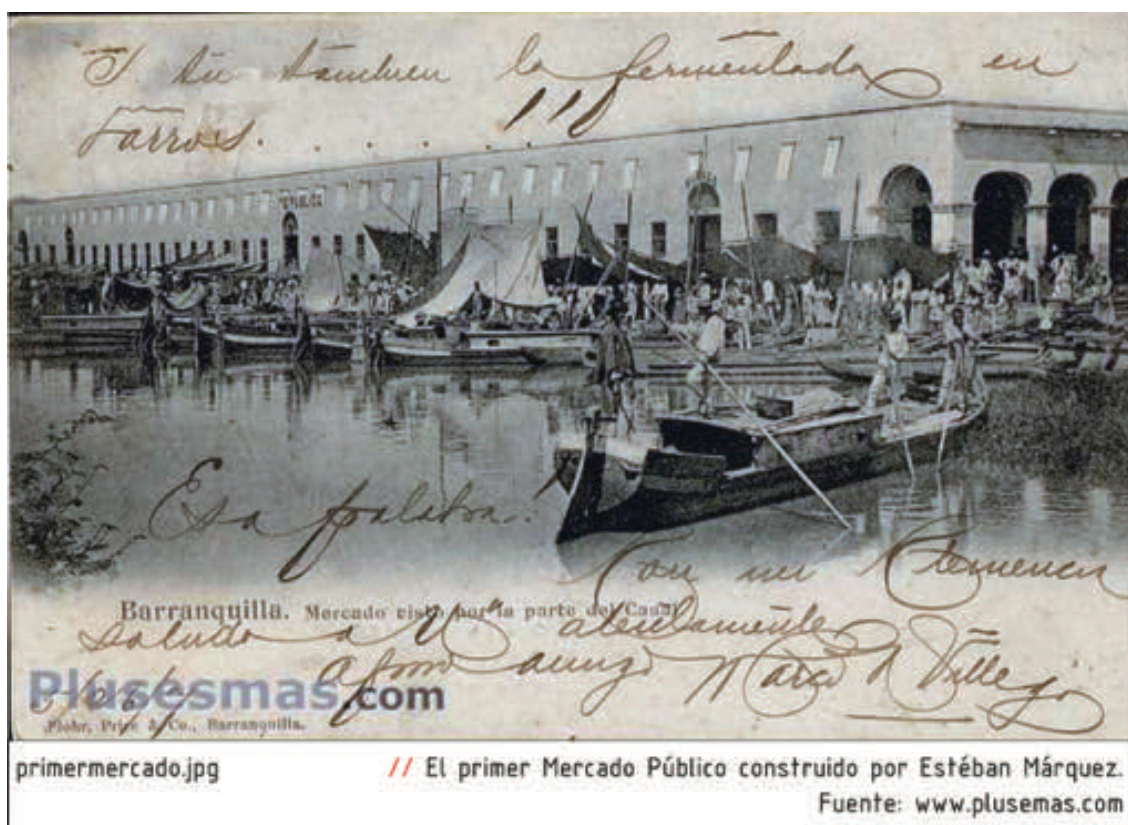 I tu tambien la fermentada en
Tarros. . . . . .
REPUBLICA
Esa palabra!
Con mi
Barranquilla. Mercado visto por la parte del Canal
saludo a U atentamente
amigo Marco A Villego
Plusesmas.com
Flohr, Price & Co., Barranquilla.
primermercado.jpg
// El primer Mercado Público construido por Estéban Márquez.
Fuente: www.plusemas.com